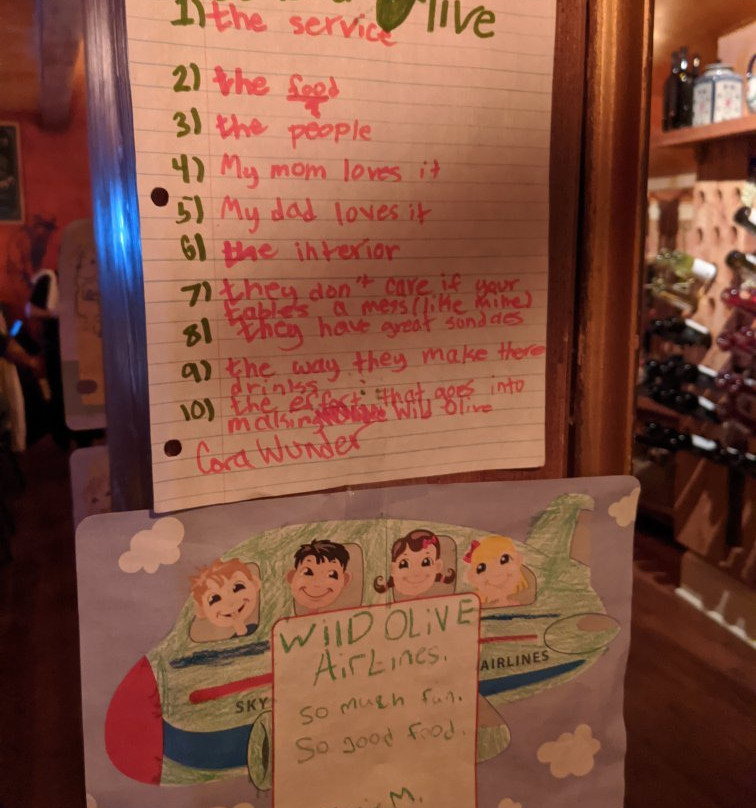 live
1) the service
2) the food
3) the people
4) My mom loves it
5) My dad loves it
6) the interior
7) they don't care if your
tables a mess (like mine)
8) they have great sondaes
9) the way they make there
drinks
10) the effort that goes into
making Wild Olive
Cora Wunder
WilD OLIVE
AirLines.
SKY
AIRLINES
so much fun.
So good food.
M.